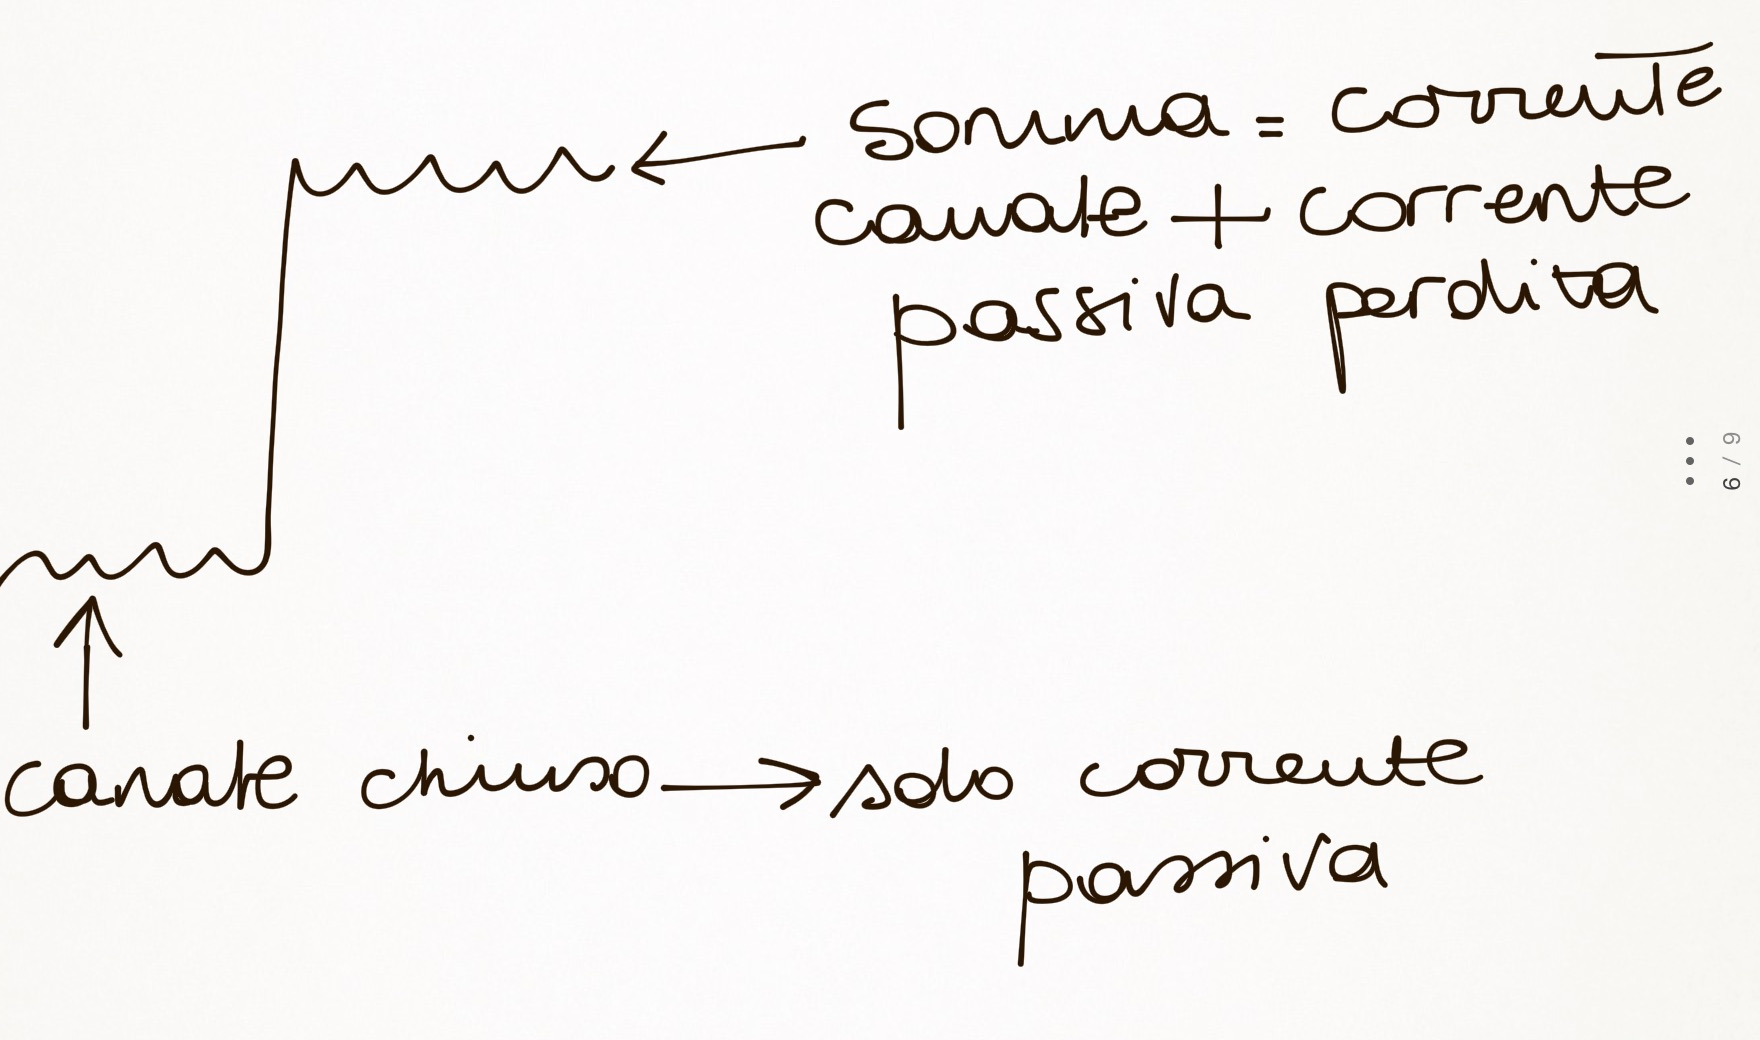 somma = corrente
canale + corrente
passiva perdita
6 / 9
canale chiuso → solo corrente
passiva